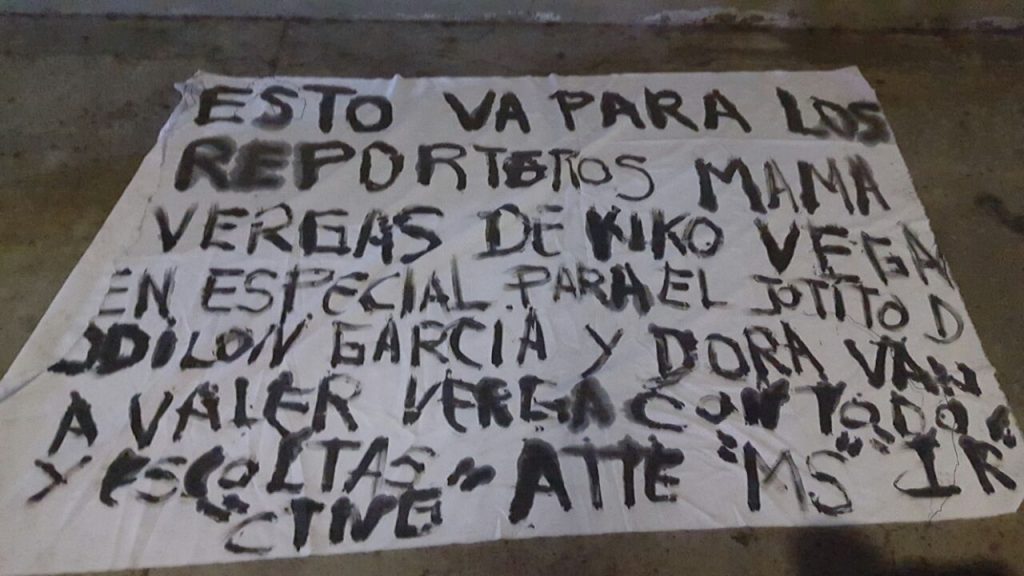 ESTO VA PARA LOS
REPORTEROS MAMA
VERGAS DE KIKO VEGA
EN ESPECIAL PARA EL JOTITO D
ODILON GARCIA Y DORA VAN
A VALER VERGA CON TODO"
Y ESCOLTAS" ATTE "MS" IR
"CTNG